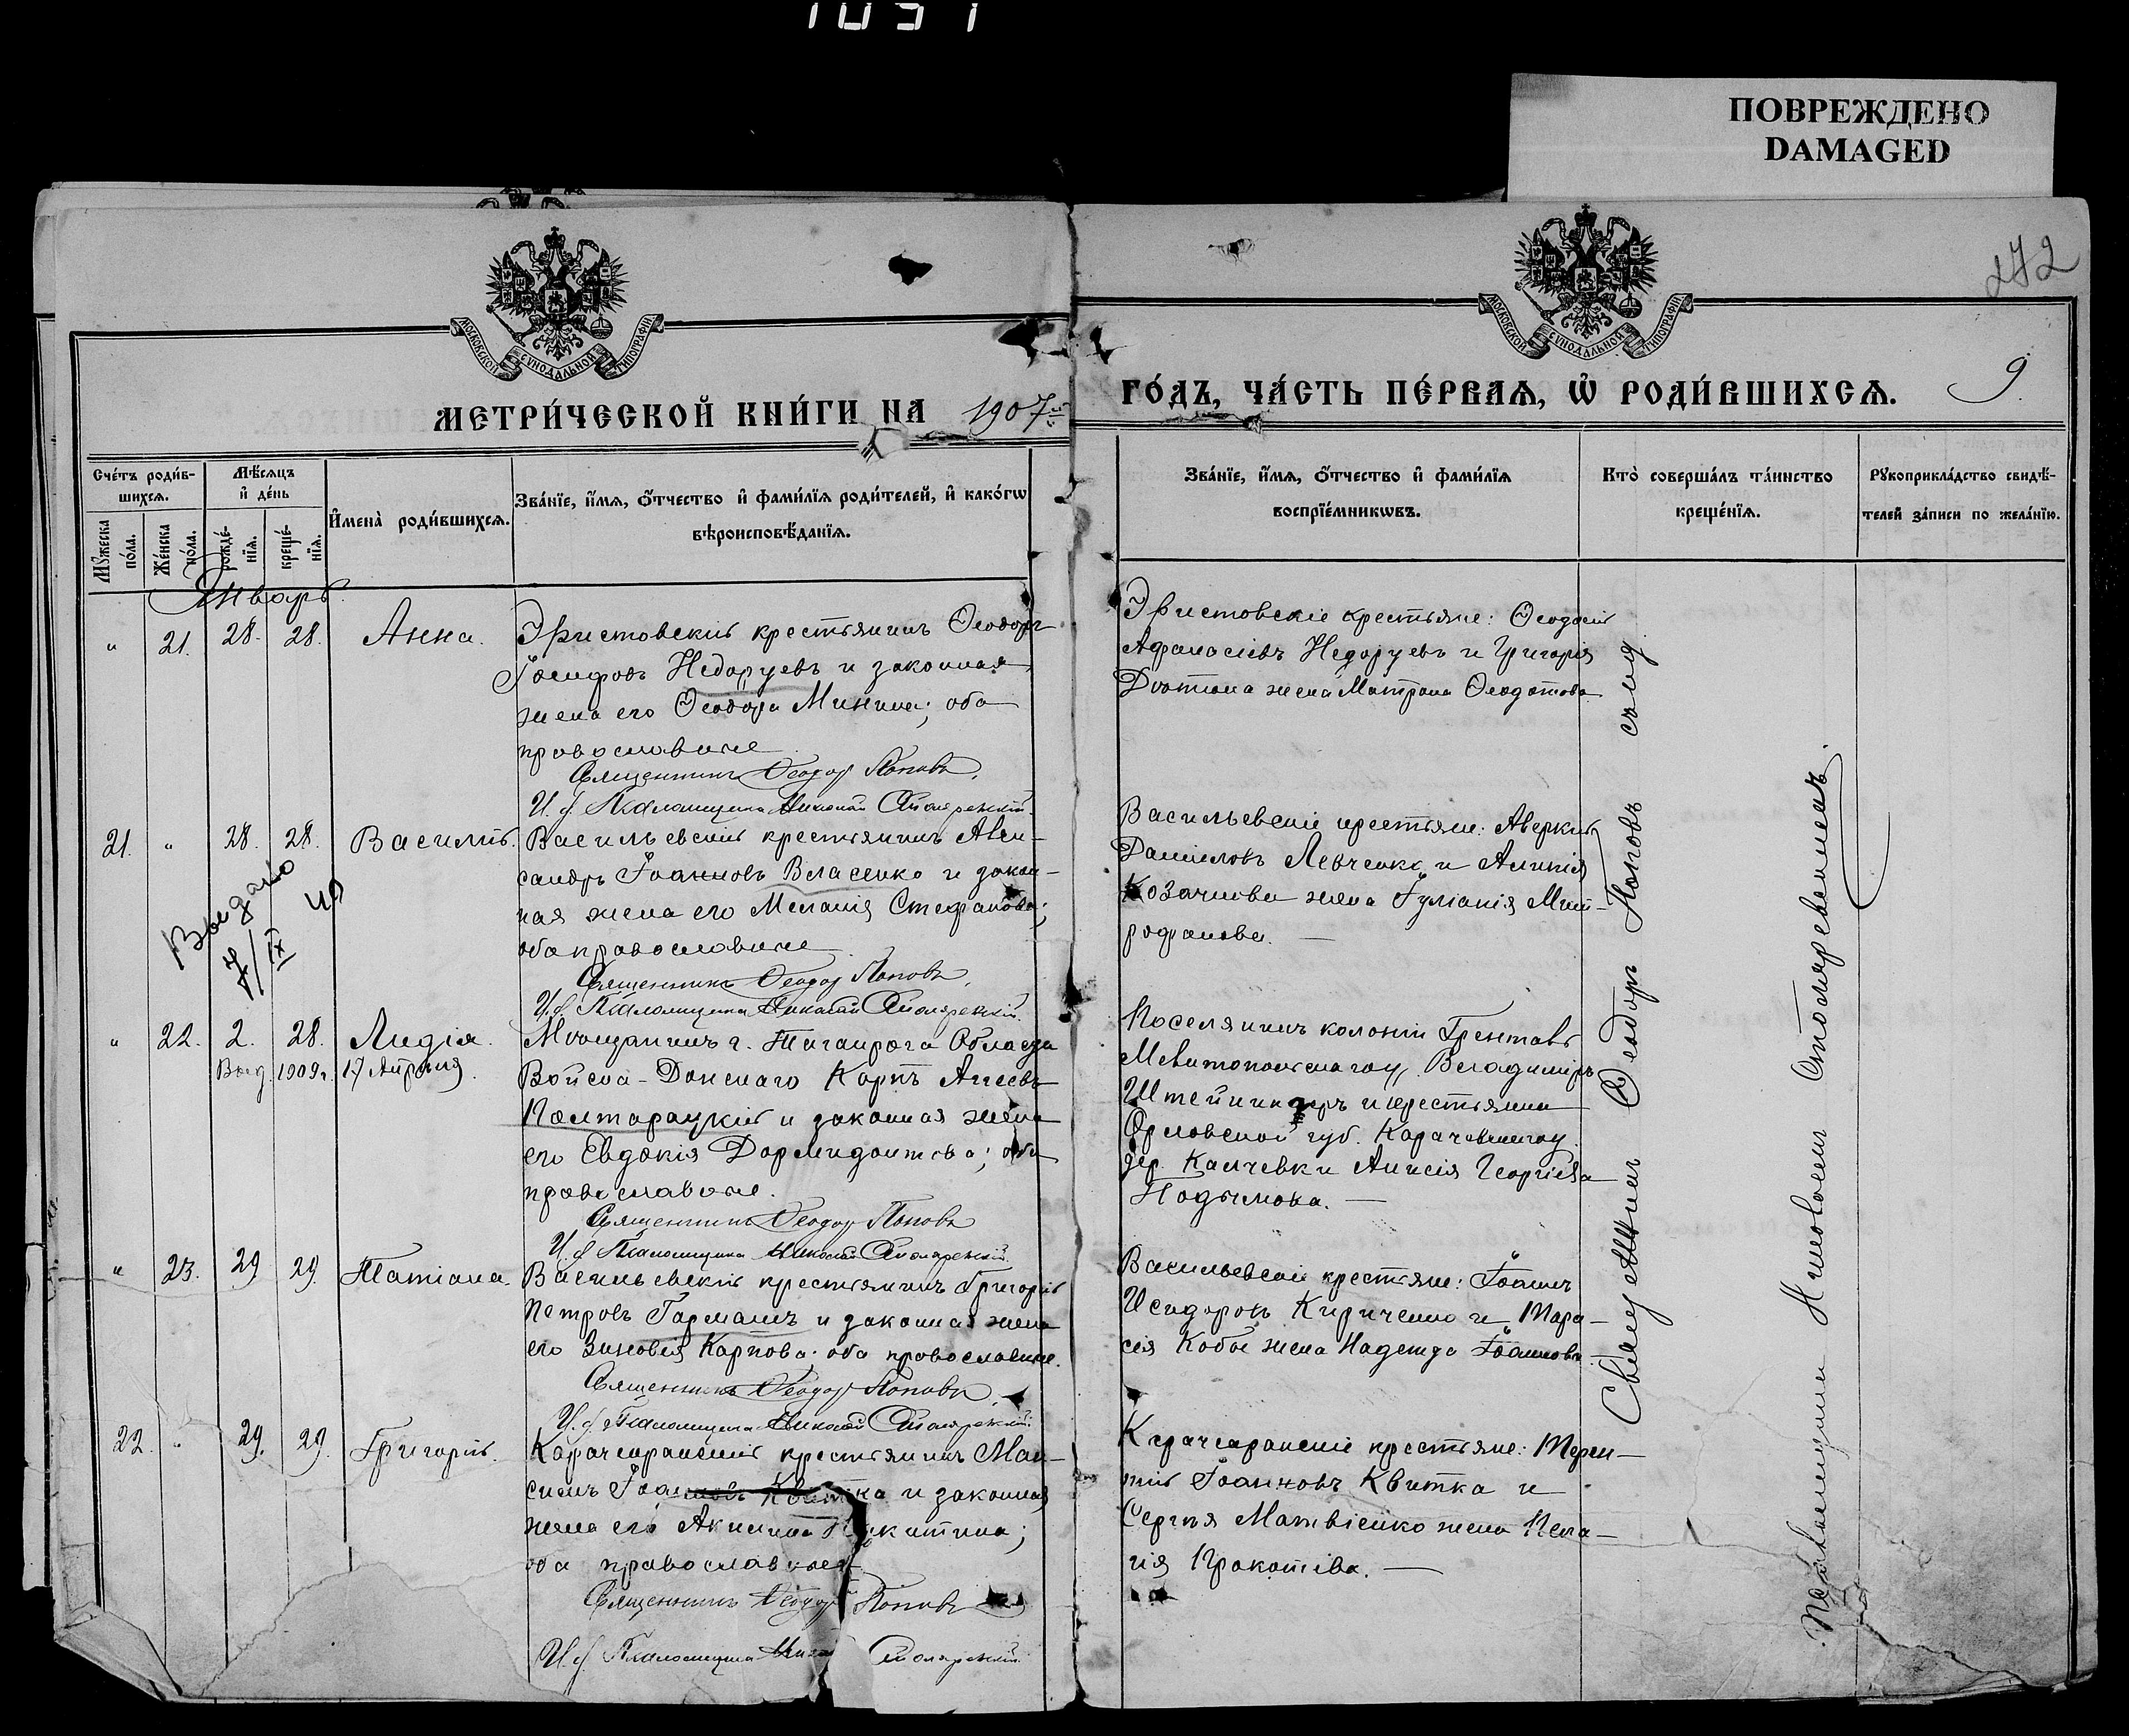 1051
ПОВРЕЖДЕНО
DAMAGED
272
МОСКОВСКОЙ СѴНОДАЛЬНОЙ ТИПОГРАФІИ
МОСКОВСКОЙ СѴНОДАЛЬНОЙ ТИПОГРАФІИ
МЕТРИ́ЧЕСКОЙ КНИ́ГИ НА 1907
ГО́ДЪ, ЧА́СТЬ ПЕ́РВАѦ, Ѡ҆ РОДИ́ВШИХСѦ. 9.
Сче́тъ роди́в-
шихсѧ.
Мꙋ́жеска по́ла.
Же́нска по́ла.
Мѣ́сѧцъ
и҆ де́нь
рожде́-нїѧ.
креще́-нїѧ.
И҆мена̀ роди́вшихсѧ.
Зва́нїе, и҆́мѧ, ѻ҆́тчество и҆ фами́лїѧ роди́телей, и҆ како́гѡ
вѣроисповѣ́данїѧ.
Зва́нїе, и҆́мѧ, ѻ҆́тчество и҆ фами́лїѧ
воспрїе́мникѡвъ.
Кто̀ соверша́лъ та́инство
креще́нїѧ.
Рꙋкоприкла́дство свидѣ́-
телей за́писи по жела́нїю.
Январь
" 21. 28. 28. Анна.
Эристовскій крестьянинъ Ѳеодоръ
Іосифовъ Недоруевъ и законная
жена его Ѳеодора Минина; оба
православные
Священникъ Ѳеодор Поповъ.
И. д. Псаломщика Николай Столяревскій.
Эристовскіе крестьяне: Ѳеодосій
Афанасіевъ Недоруевъ и Григорія
жена Матрона Ѳеодотова
21. " 28. 28. Василій.
Выдано
7/IX 40
Васильевскій крестьянинъ Алек-
сандръ Іоанновъ Власенко и закон-
ная жена его Меланія Стефанова;
оба православные
Священникъ Ѳеодор Поповъ.
И. д. Псаломщика Николай Столяревскій.
Васильевскіе крестьяне: Аверкій
Даниловъ Левченко и
жена Іуліанія Мит-
рофанова. —
" 22. 2. 28. Лидія.
Выд. 1909 г. 17 Апрѣля
Мѣщанинъ г. Таганрога Области
Войска-Донскаго Карпъ Агеевъ
Полтарацкій и законная жена
его Евдокія Дормидонтова; оба
православные.
Священникъ Ѳеодор Поповъ
И. д. Псаломщика Николай Столяревскій
Поселянинъ колоніи
Мелитопольскаго у. Владимиръ
и крестьянка
Орловской губ. Карачевскаго у.
дер. Георгіева
—
" 23. 29 29. Татіана.
Васильевскій крестьянинъ Григорій
Петровъ Гармашъ и законная жена
его Зиновія Карпова; оба православные.
Священникъ Ѳеодор Поповъ.
И. д. Псаломщика Николай Столяревскій.
Васильевскіе крестьяне: Іоаннъ
Исидоровъ Кириченко и Тара-
сія Кобы жена Надежда Іоаннова.
22. " 29. 29. Григорій.
Карачекракскій крестьянинъ Мак-
симъ Іоанновъ Квитка и законная
жена его Акилина Никитина;
оба православные
Священникъ Ѳеодор Поповъ
И. д. Псаломщика Столяревскій.
Карачекракскіе крестьяне: Терен-
тій Іоанновъ Квитка и
Сергія Матвіенко жена Пела-
гія Прокопіева. —
Священникъ Ѳеодоръ Поповъ съ и. д.
Псаломщика Николаемъ Столяревскимъ.